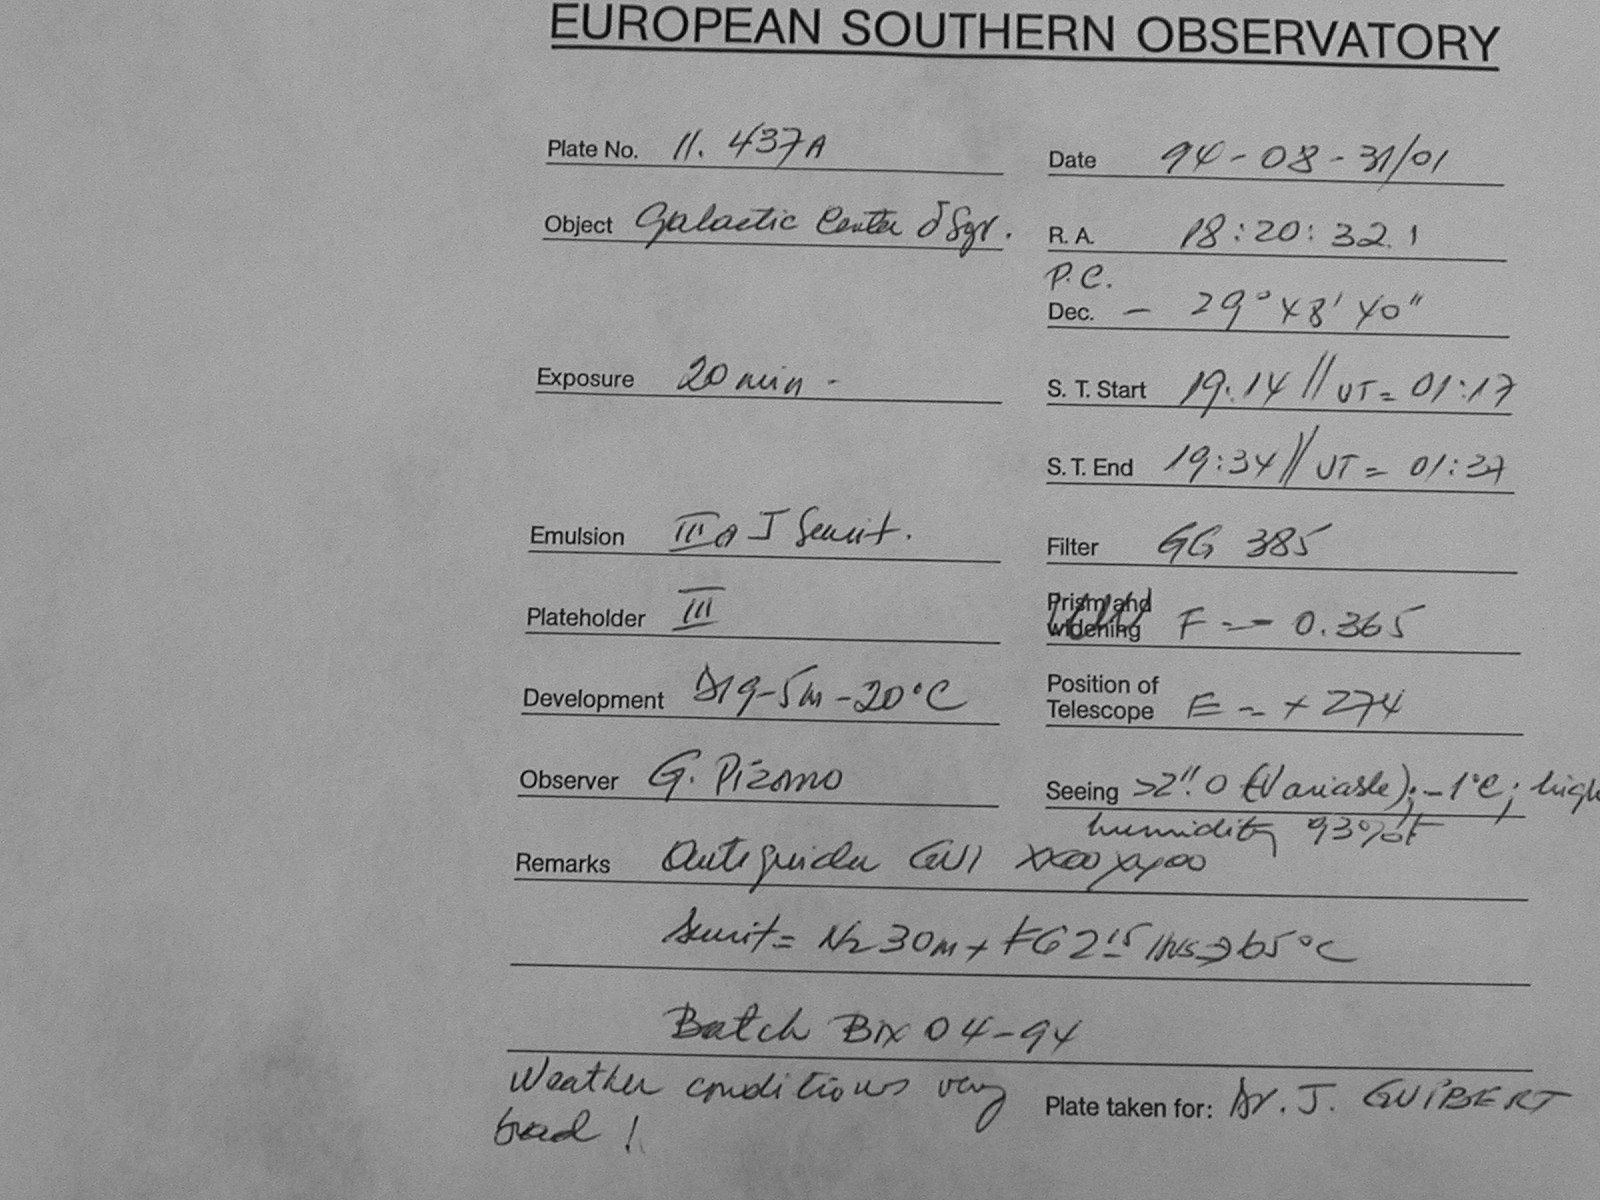 EUROPEAN SOUTHERN OBSERVATORY
Plate No. 11. 437A
Date 94-08-31/01
Object Galactic Center δ Sgr.
R. A. 18:20:32.1
P.C.
Dec. - 29° 48' 40"
Exposure 20 min -
S. T. Start 19:14 // UT = 01:17
S. T. End 19:34 // UT = 01:37
Emulsion IIIaJ Sensit.
Filter GG 385
Plateholder III
Prism and
widening F = - 0.365
Development D19-5m-20°C
Position of
Telescope E = + 274
Observer G. Pizarro
Seeing >2".0 (Variable); -1°C; high
humidity 93%
Remarks Autoguider
Sensit = N2 30m + FG 2.15 hrs 65°C
Batch 04-94
Weather conditions very
bad !
Plate taken for: Dr. J. GUIBERT